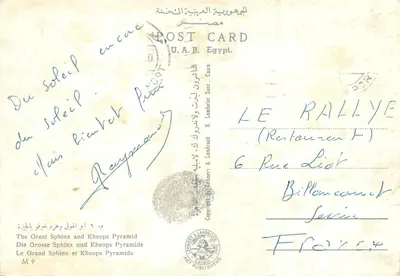 الجمهورية العربية المتحدة
مصر
POST CARD
U. A. R. Egypt.
Du soleil encore
du soleil.
Mais bientôt fini
Raymond
LE RALLYE
(Restaurant)
6 Rue Liot
Billancourt
Seine
France
The Great Sphinx and Kheops Pyramid
Die Grosse Sphinx und Kheops Pyramide
Le Grand Sphinx et Kheops Pyramide
M 9